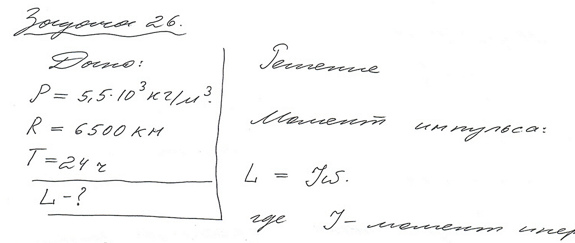 Задача 26.
Дано:
ρ = 5,5·10³ кг/м³.
R = 6500 км
T = 24 ч
L - ?
Решение
Момент импульса:
L = Jω.
где J - момент инер